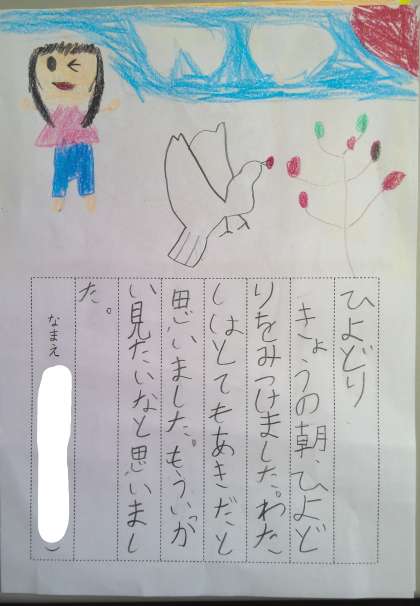 ひよどり
きょうの朝、ひよど
りをみつけました。わた
しはとてもあきだと
思いました。もういっか
い見たいなと思いまし
た。
なまえ